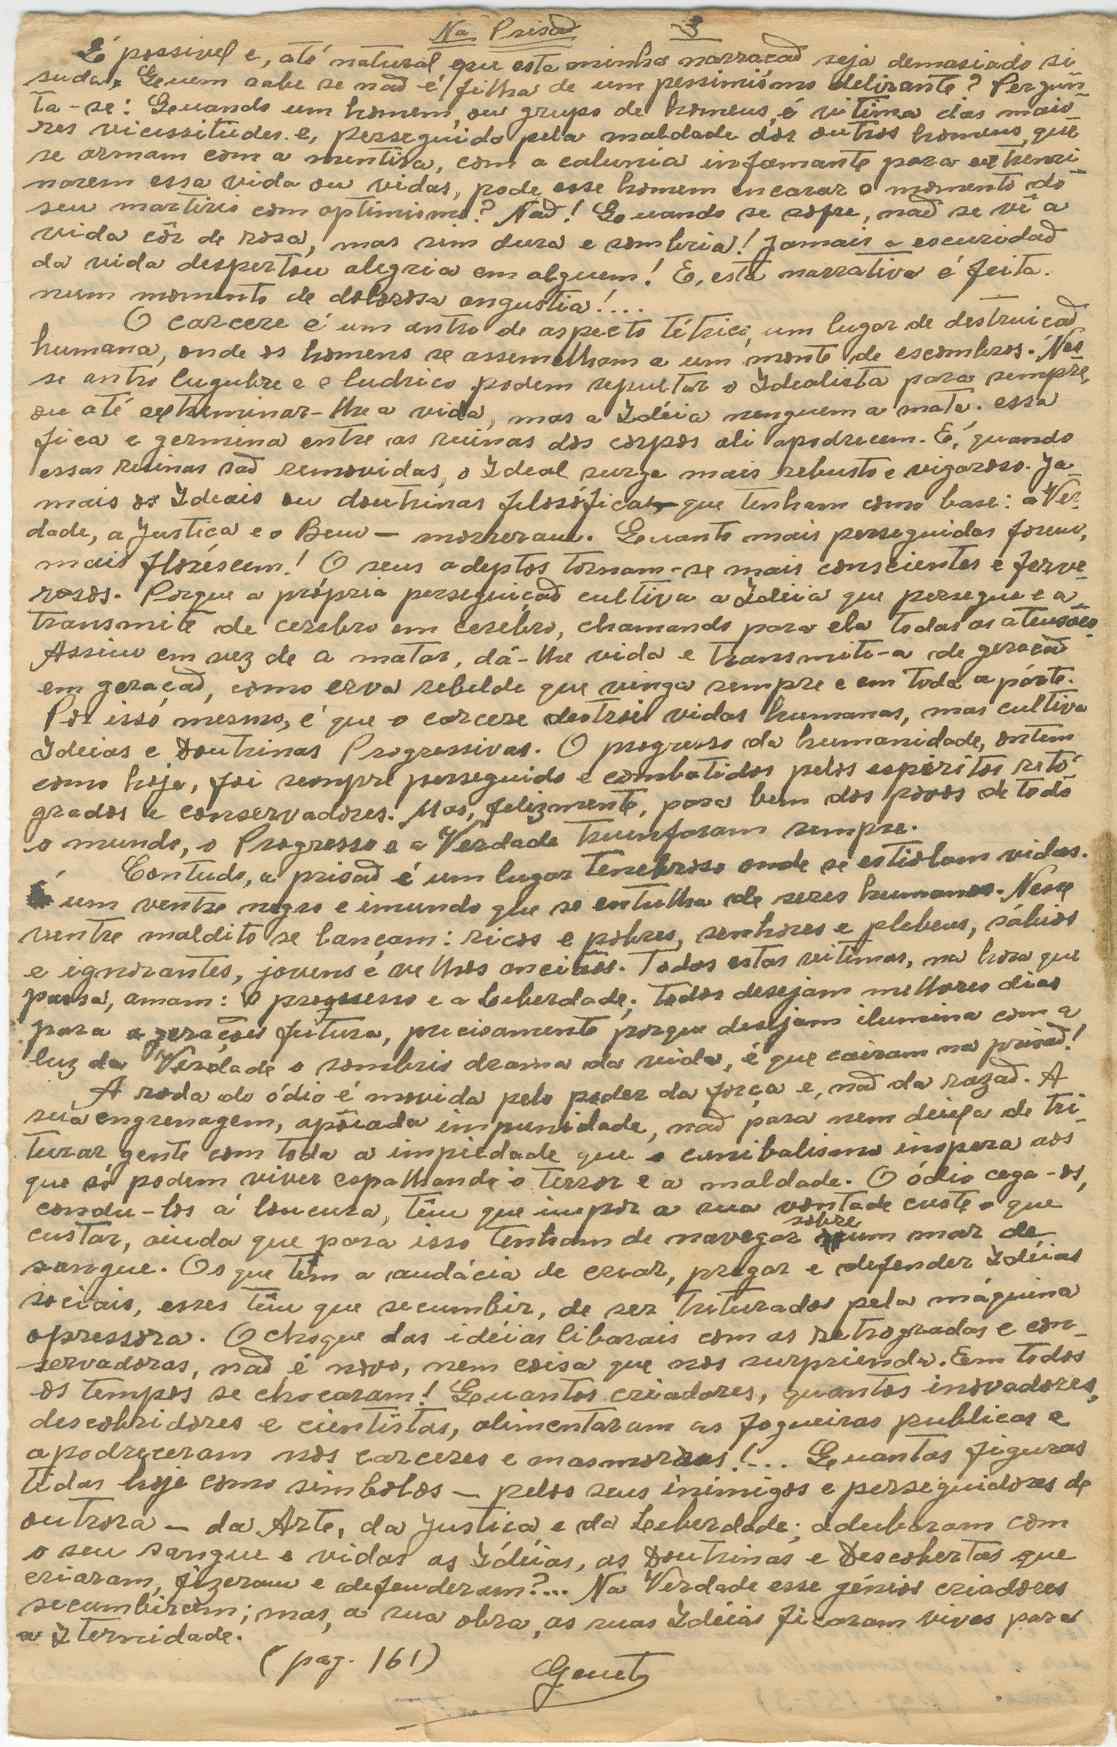 Na Prisaõ 3
É possivel e, até natural que esta minha narraçaõ seja demasiado si
suda. Quem sabe se naõ é filha de um pessimismo delirante? Pergun-
ta-se: Quando um homem, ou grupo de homens, é vitima das maio-
res vicissitudes e, perseguido pela maldade dos outros homens, que
se armam com a mentira, com a calunia infamante para extermi
narem essa vida ou vidas, pode esse homem encarar o momento do
seu martirio com optimismo? Naõ! Quando se sofre, naõ se vê a
vida côr de rosa, mas sim dura e sombria! Jamais a escuridaõ
da vida despertou alegria em alguem! E, esta narrativa é feita
num momento de dolorosa angustia!...
O carcere é um antro de aspecto tétrico, um lugar de destruiçaõ
humana, onde os homens se assemelham a um monte de escombros. Nes
se antro lugubre e ludrico podem sepultar o Idealista para sempre,
ou até exterminar-lhe a vida, mas a Idéia nenguem a mata. essa
fica e germina entre as ruinas dos corpos ali apodrecem. E, quando
essas ruinas saõ removidas, o Ideal surge mais rebusto e vigoroso. Ja-
mais os Ideais ou doutrinas filosóficas que tenham como base: a Ver-
dade, a Justiça e o Bem — morreram. Quanto mais perseguidas forem,
mais floréscem! O seus adeptos tornam-se mais conscientes e ferve-
rosos. Porque a própria perseguiçaõ cultiva a Idéia que persegue e a
transmite de cerebro em cerebro, chamando para ela todas as atensões
Assim em vez de a matar, dá-lhe vida e transmite-a de geraçaõ
em geraçaõ, como erva rebelde que vinga sempre e em toda a parte.
Por isso mesmo, é que o carcere destroi vidas humanas, mas cultiva
Idéias e Doutrinas Progressivas. O progresso da humanidade, ontem
como hoje, foi sempre perseguido e combatidos pelos espiritos retó-
grados e conservadores. Mas, felizmente, para bem dos povos de todo
o mundo, o Progresso e a Verdade triunfaram sempre.
Contudo, a prisaõ é um lugar tenebroso onde se estiolam vidas.
É um ventre negro e imundo que se entulha de seres humanos. Nesse
ventre maldito se lançam: ricos e pobres, senhores e plebeus, sábios
e ignorantes, jovens e velhos anciãos. Todos estas vitimas, na hora que
passa, amam: o progresso e a Leberdade; todos desejam melhores dias
para a gerações futura, precisamente porque desejam ilumina com a
luz da Verdade o sombrio drama da vida, é que cairam na prisaõ!
A roda do ódio é movida pelo poder da força e, naõ da razaõ. A
sua engrenagem, apoiada impunidade, naõ para nem deixa de tri-
turar gente com toda a impiedade que o canibalismo inspera aos
que só podem viver espalhando o terror e a maldade. O ódio cega-os,
condu-los á loucura, têm que impor a sua vontade custe o que
custar, ainda que para isso tenham de navegar sobre um mar de
sangue. Os que têm a audácia de criar, pregar e defender Idéias
sociais, esses têm que secumbir, de ser triturados pela máquina
opressora. O choque das idéias libarais com as retrogradas e con-
servadoras, naõ é novo, nem coisa que nos surprienda. Em todos
os tempos se chocaram! Quantos criadores, quantos inovadores,
descobridores e cientistas, alimentaram as fogueiras publicas e
apodreceram nos carceres e masmorras!... Quantas figuras
tidas hoje como simbolos — pelos seus inimigos e perseguidores de
outrora — da Arte, da Justiça e da Leberdade; adubaram com
o seu sangue e vidas as Idéias, as Doutrinas e Descobertas que
criaram, fizeram e defenderam?... Na Verdade esse génios criadores
secumbiram; mas, a sua obra, as suas Idéias ficaram vivas para
a Iternidade.
(pag. 161)